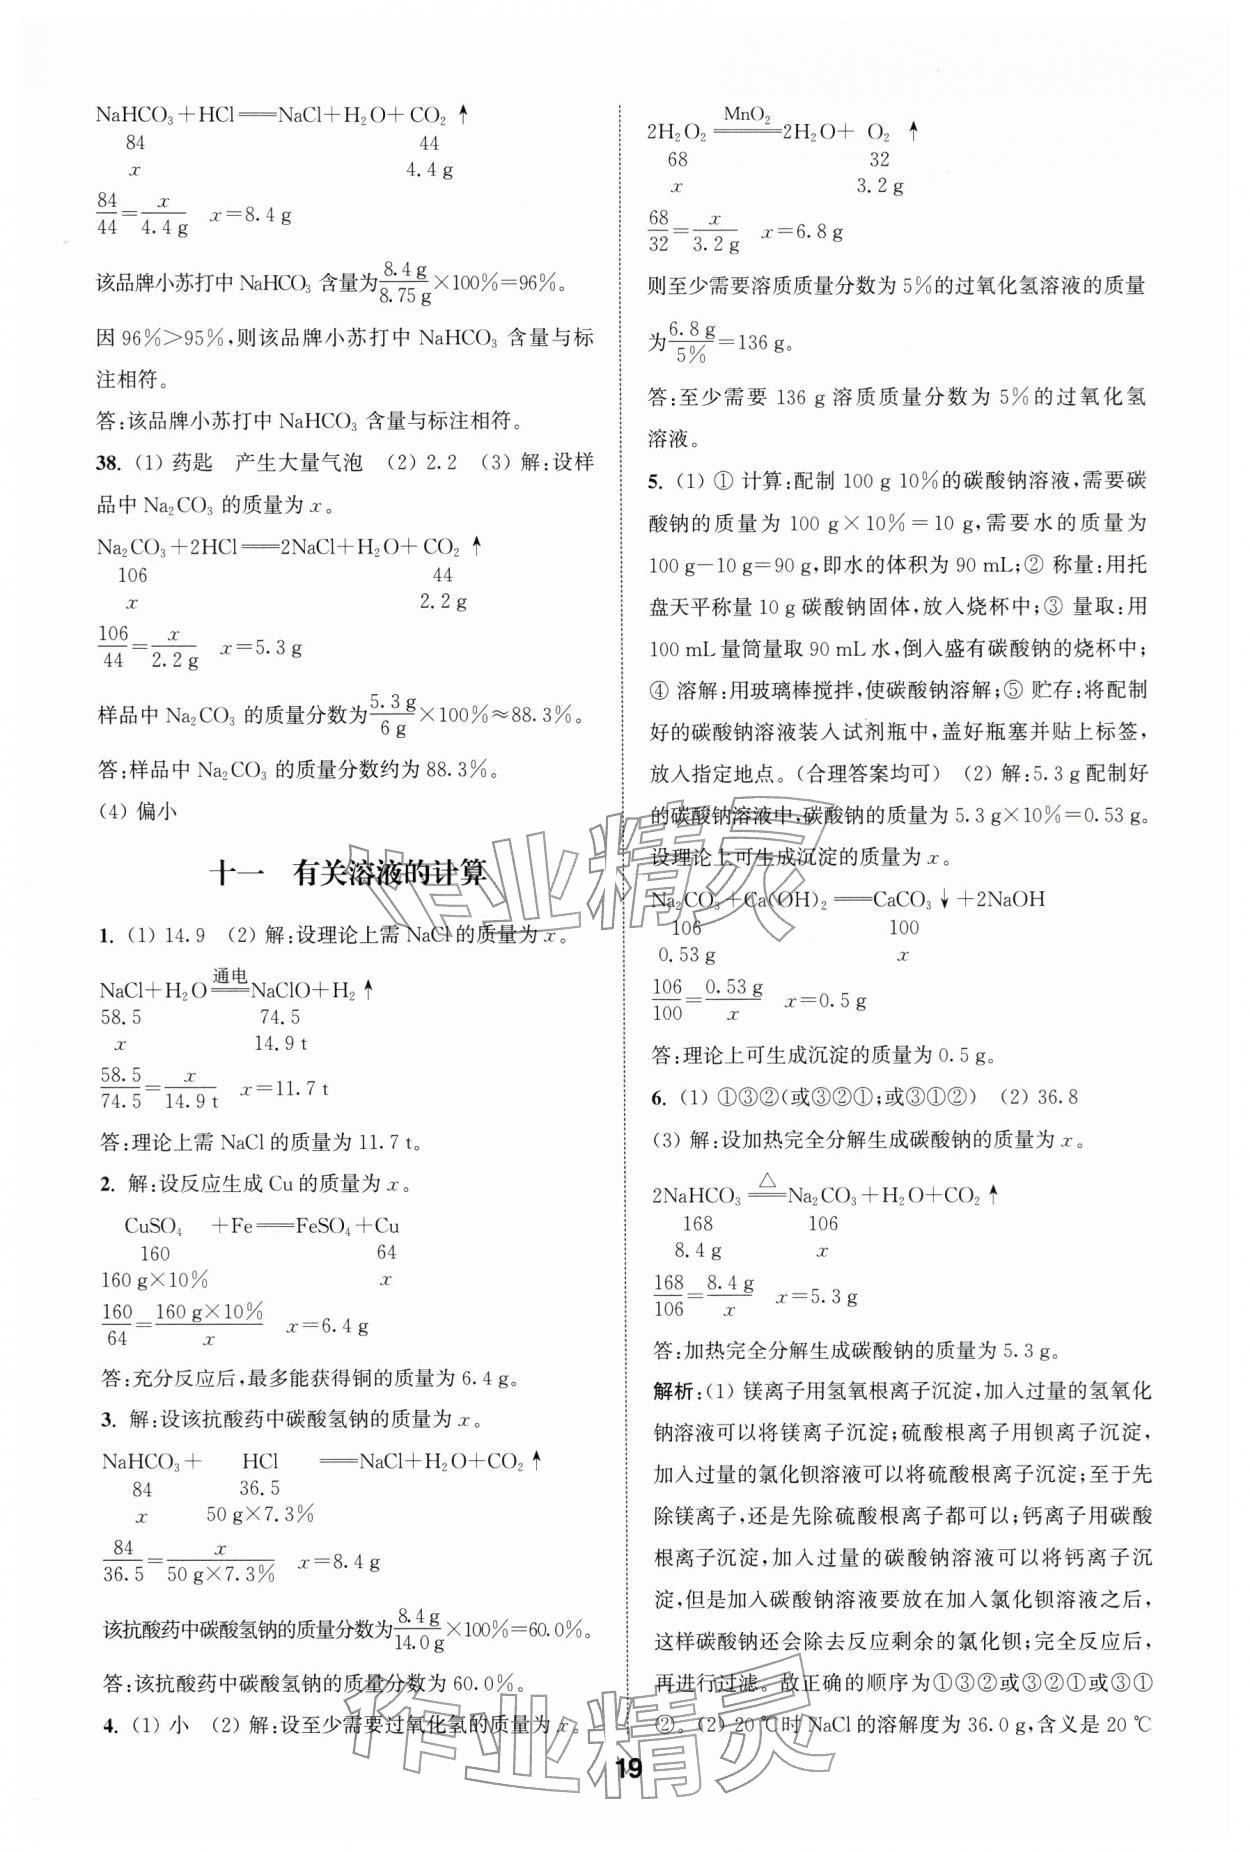 NaHCO₃+HCl══NaCl+H₂O+CO₂↑
84 44
x 4.4 g
84/44=x/4.4 g x=8.4 g
该品牌小苏打中 NaHCO₃ 含量为8.4 g/8.75 g×100%=96%。
因 96%>95%,则该品牌小苏打中 NaHCO₃ 含量与标
注相符。
答:该品牌小苏打中 NaHCO₃ 含量与标注相符。
38. (1) 药匙 产生大量气泡 (2) 2.2 (3) 解:设样
品中 Na₂CO₃ 的质量为 x。
Na₂CO₃+2HCl══2NaCl+H₂O+CO₂↑
106 44
x 2.2 g
106/44=x/2.2 g x=5.3 g
样品中 Na₂CO₃ 的质量分数为5.3 g/6 g×100%≈88.3%。
答:样品中 Na₂CO₃ 的质量分数约为 88.3%。
(4) 偏小
十一 有关溶液的计算
1. (1) 14.9 (2) 解:设理论上需 NaCl 的质量为 x。
通电
NaCl+H₂O══NaClO+H₂↑
58.5 74.5
x 14.9 t
58.5/74.5=x/14.9 t x=11.7 t
答:理论上需 NaCl 的质量为 11.7 t。
2. 解:设反应生成 Cu 的质量为 x。
CuSO₄ +Fe══FeSO₄+Cu
160 64
160 g×10% x
160/64=160 g×10%/x x=6.4 g
答:充分反应后,最多能获得铜的质量为 6.4 g。
3. 解:设该抗酸药中碳酸氢钠的质量为 x。
NaHCO₃+ HCl ══NaCl+H₂O+CO₂↑
84 36.5
x 50 g×7.3%
84/36.5=x/50 g×7.3% x=8.4 g
该抗酸药中碳酸氢钠的质量分数为8.4 g/14.0 g×100%=60.0%。
答:该抗酸药中碳酸氢钠的质量分数为 60.0%。
4. (1) 小 (2) 解:设至少需要过氧化氢的质量为 x。
MnO₂
2H₂O₂══2H₂O+ O₂↑
68 32
x 3.2 g
68/32=x/3.2 g x=6.8 g
则至少需要溶质质量分数为 5%的过氧化氢溶液的质量
为6.8 g/5%=136 g。
答:至少需要 136 g 溶质质量分数为 5%的过氧化氢
溶液。
5. (1) ① 计算:配制 100 g 10%的碳酸钠溶液,需要碳
酸钠的质量为 100 g×10%=10 g,需要水的质量为
100 g-10 g=90 g,即水的体积为 90 mL;② 称量:用托
盘天平称量 10 g 碳酸钠固体,放入烧杯中;③ 量取:用
100 mL 量筒量取 90 mL 水,倒入盛有碳酸钠的烧杯中;
④ 溶解:用玻璃棒搅拌,使碳酸钠溶解;⑤ 贮存:将配制
好的碳酸钠溶液装入试剂瓶中,盖好瓶塞并贴上标签,
放入指定地点。(合理答案均可) (2) 解:5.3 g配制好
的碳酸钠溶液中,碳酸钠的质量为 5.3 g×10%=0.53 g。
设理论上可生成沉淀的质量为 x。
Na₂CO₃+Ca(OH)₂══CaCO₃↓+2NaOH
106 100
0.53 g x
106/100=0.53 g/x x=0.5 g
答:理论上可生成沉淀的质量为 0.5 g。
6. (1) ①③②(或③②①;或③①②) (2) 36.8
(3) 解:设加热完全分解生成碳酸钠的质量为 x。
△
2NaHCO₃══Na₂CO₃+H₂O+CO₂↑
168 106
8.4 g x
168/106=8.4 g/x x=5.3 g
答:加热完全分解生成碳酸钠的质量为 5.3 g。
解析:(1) 镁离子用氢氧根离子沉淀,加入过量的氢氧化
钠溶液可以将镁离子沉淀;硫酸根离子用钡离子沉淀,
加入过量的氯化钡溶液可以将硫酸根离子沉淀;至于先
除镁离子,还是先除硫酸根离子都可以;钙离子用碳酸
根离子沉淀,加入过量的碳酸钠溶液可以将钙离子沉
淀,但是加入碳酸钠溶液要放在加入氯化钡溶液之后,
这样碳酸钠还会除去反应剩余的氯化钡;完全反应后,
再进行过滤。故正确的顺序为①③②或③②①或③①
②。(2) 20 ℃时 NaCl 的溶解度为 36.0 g,含义是 20 ℃
作业精灵
作业精灵
19